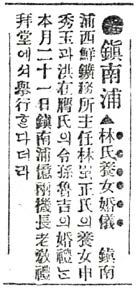 ◆鎭南浦 ▲林氏養女婚儀 鎭南
浦西鮮鑛務所主任林崇正氏의養女申
秀玉과洪在膺氏의令孫魯吉의婚禮는
本月二十一日鎭南浦億兩機長老敎禮
拜堂에셔擧行ᄒᆞᆫ다더라